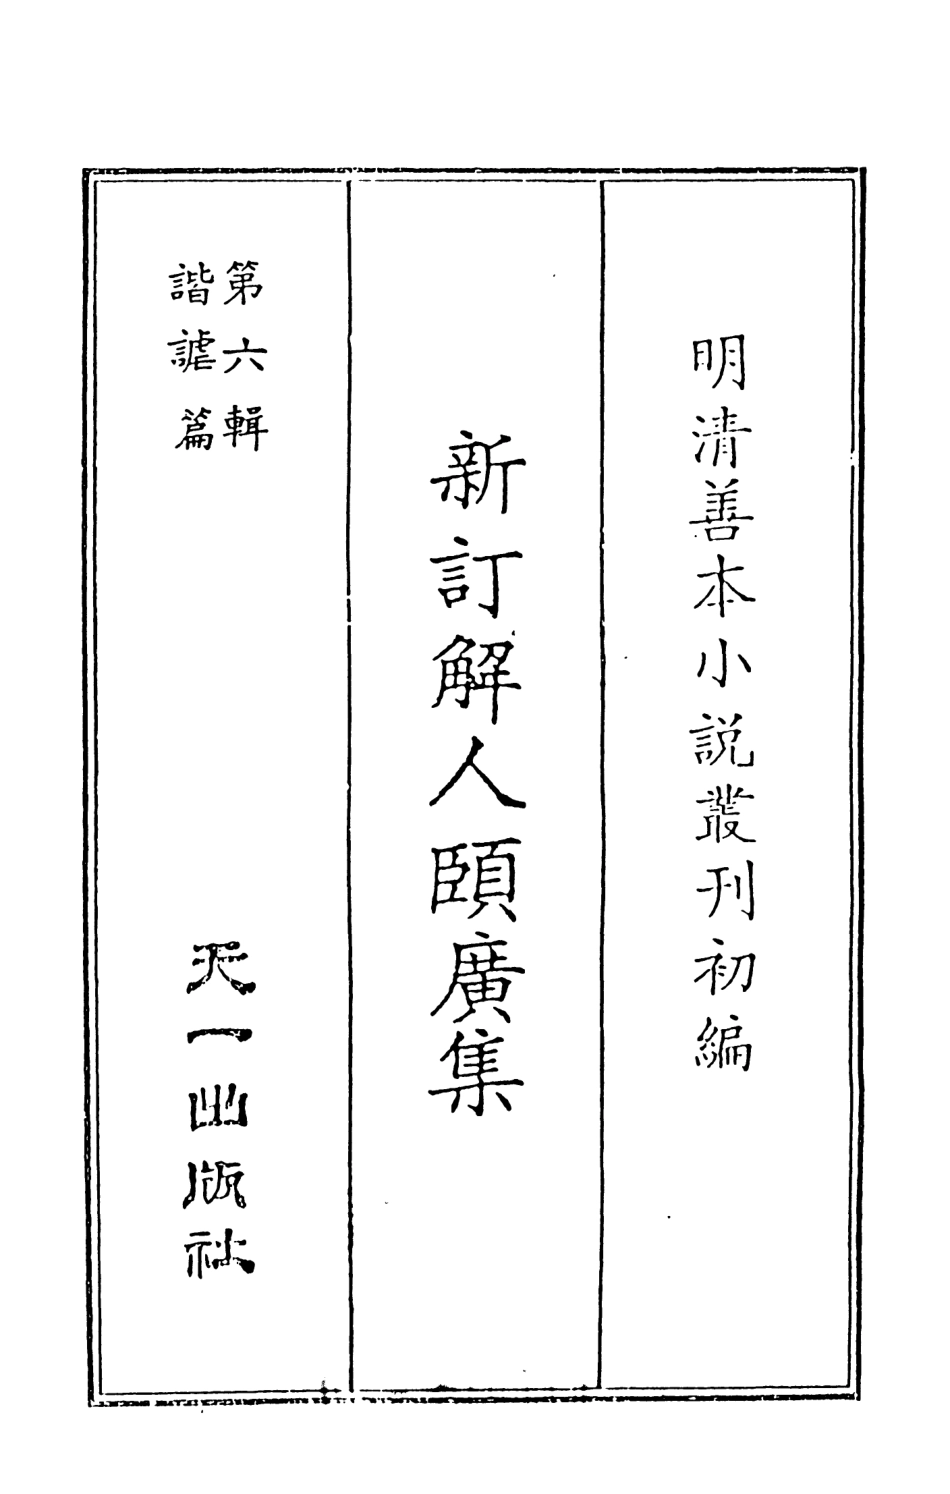 明清善本小説叢刊初編
新訂解人頤廣集
第六輯
諧謔篇
天一出版社